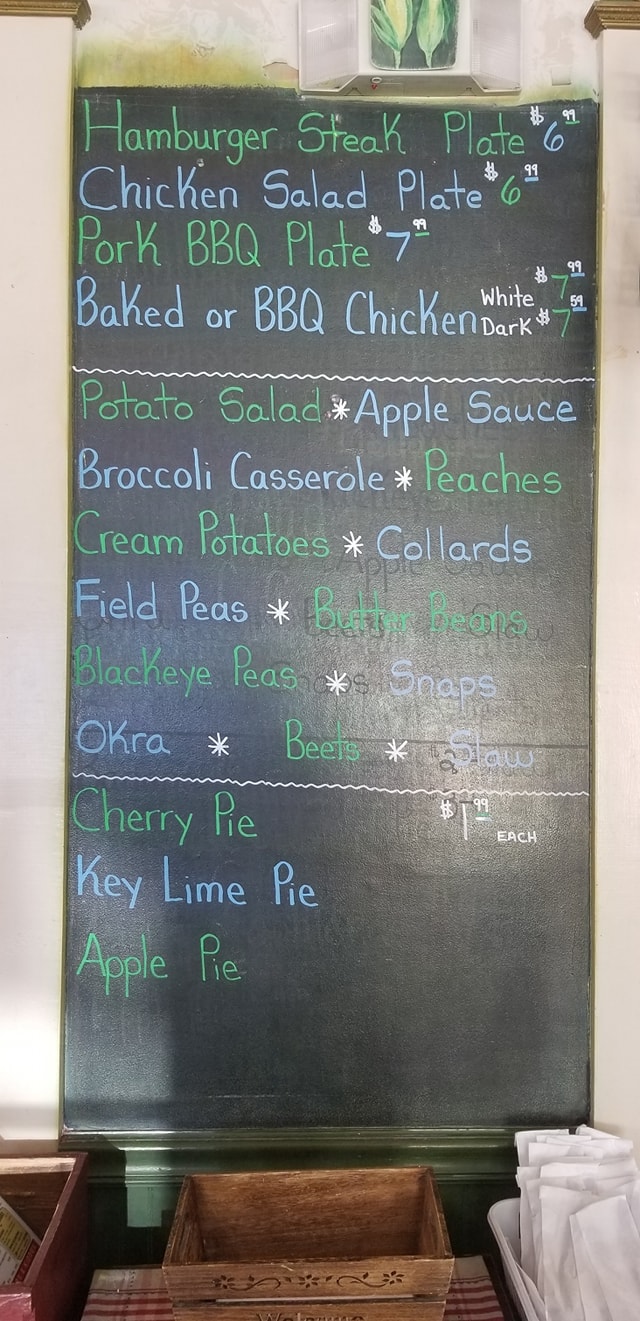 Hamburger Steak Plate $6.99
Chicken Salad Plate $6.99
Pork BBQ Plate $7.99
Baked or BBQ Chicken White $7.99
Dark $7.59
Potato Salad * Apple Sauce
Broccoli Casserole * Peaches
Cream Potatoes * Collards
Field Peas * Butter Beans
Blackeye Peas * Snaps
Okra * Beets * Slaw
Cherry Pie $1.99 EACH
Key Lime Pie
Apple Pie